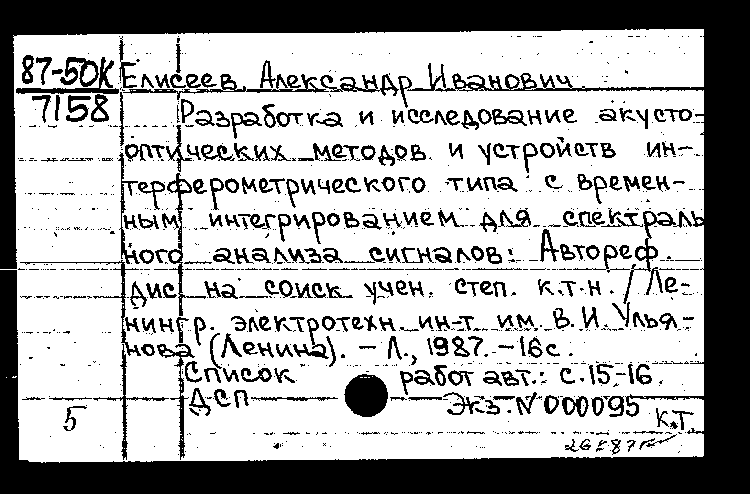 87-50К Елисеев, Александр Иванович
7158 Разработка и исследование акусто-
оптических методов и устройств ин-
терферометрического типа с времен-
ным интегрированием для спектраль
ного анализа сигналов: Автореф.
дис. на соиск. учен. степ. к.т.н. / Ле-
нингр. электротехн. ин-т им. В.И. Улья-
нова (Ленина). – Л., 1987. – 16с.
Список работ авт.: с.15-16.
ДСП Экз. № 000095
5 К.Т.